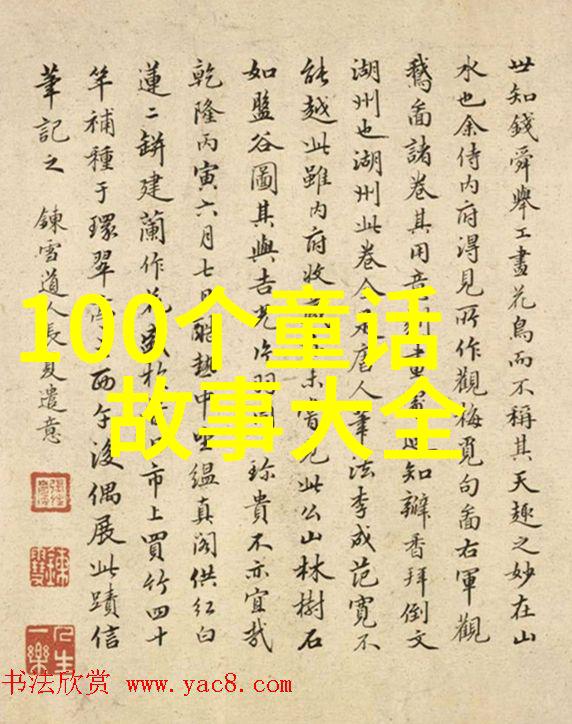 世知錢舜舉工畫花鳥而不稱其天趣之妙在山
水也余侍内府得見所作觀梅覓句圖右軍觀
鵝圖諸卷其用意
知辦香拜倒文
湖州也湖州此卷全
唐人筆法李成范寬不
能越此雖内府收
未嘗見此公山林樹石
如盤谷圖其與吉光片羽
珍貴不亦宜哉
乾隆丙寅六月七日酷熱中坐縕真閣供紅白
蓮二缾建蘭作花盛
市上買竹四十
竿補種于環翠
西午後偶展此蹟信
筆記之 鍊雪道人長夏遣意
100个童话
故事大全
人生一樂
书法欣赏 www.yac8.com